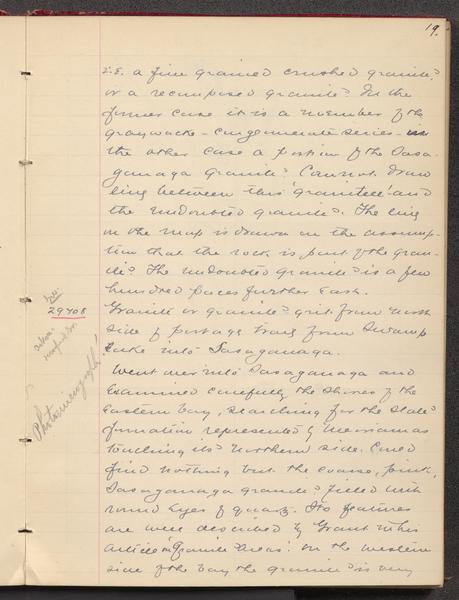 19.
i.e. a fine grained crushed granite?
or a recomposed granite? In the
former case it is a member of the
graywacke-conglomerate series - in
the other case a portion of the Sasa-
ganaga granite? Cannot draw
line between this "granitell" and
the undoubted granite. The line
on the map is drawn on the assump-
tion that the rock is part of the gran-
ite? The undoubted granite is a few
hundred paces further East.
29408
Granite or granite grit from North
side of portage trail from Swamp
Lake into Sasaganaga.
Photomicrograph!
Went over into Sasaganaga and
examined carefully the shores of the
Eastern bay, searching for the slate
formation represented by Merriam as
touching its Northern side. Could
find nothing but the coarse, pink,
Sasaganaga granite filled with
round eyes of quartz. Its features
are well described by Grant in his
article on "Granite Areas". On the western
side of the bay the granite is very